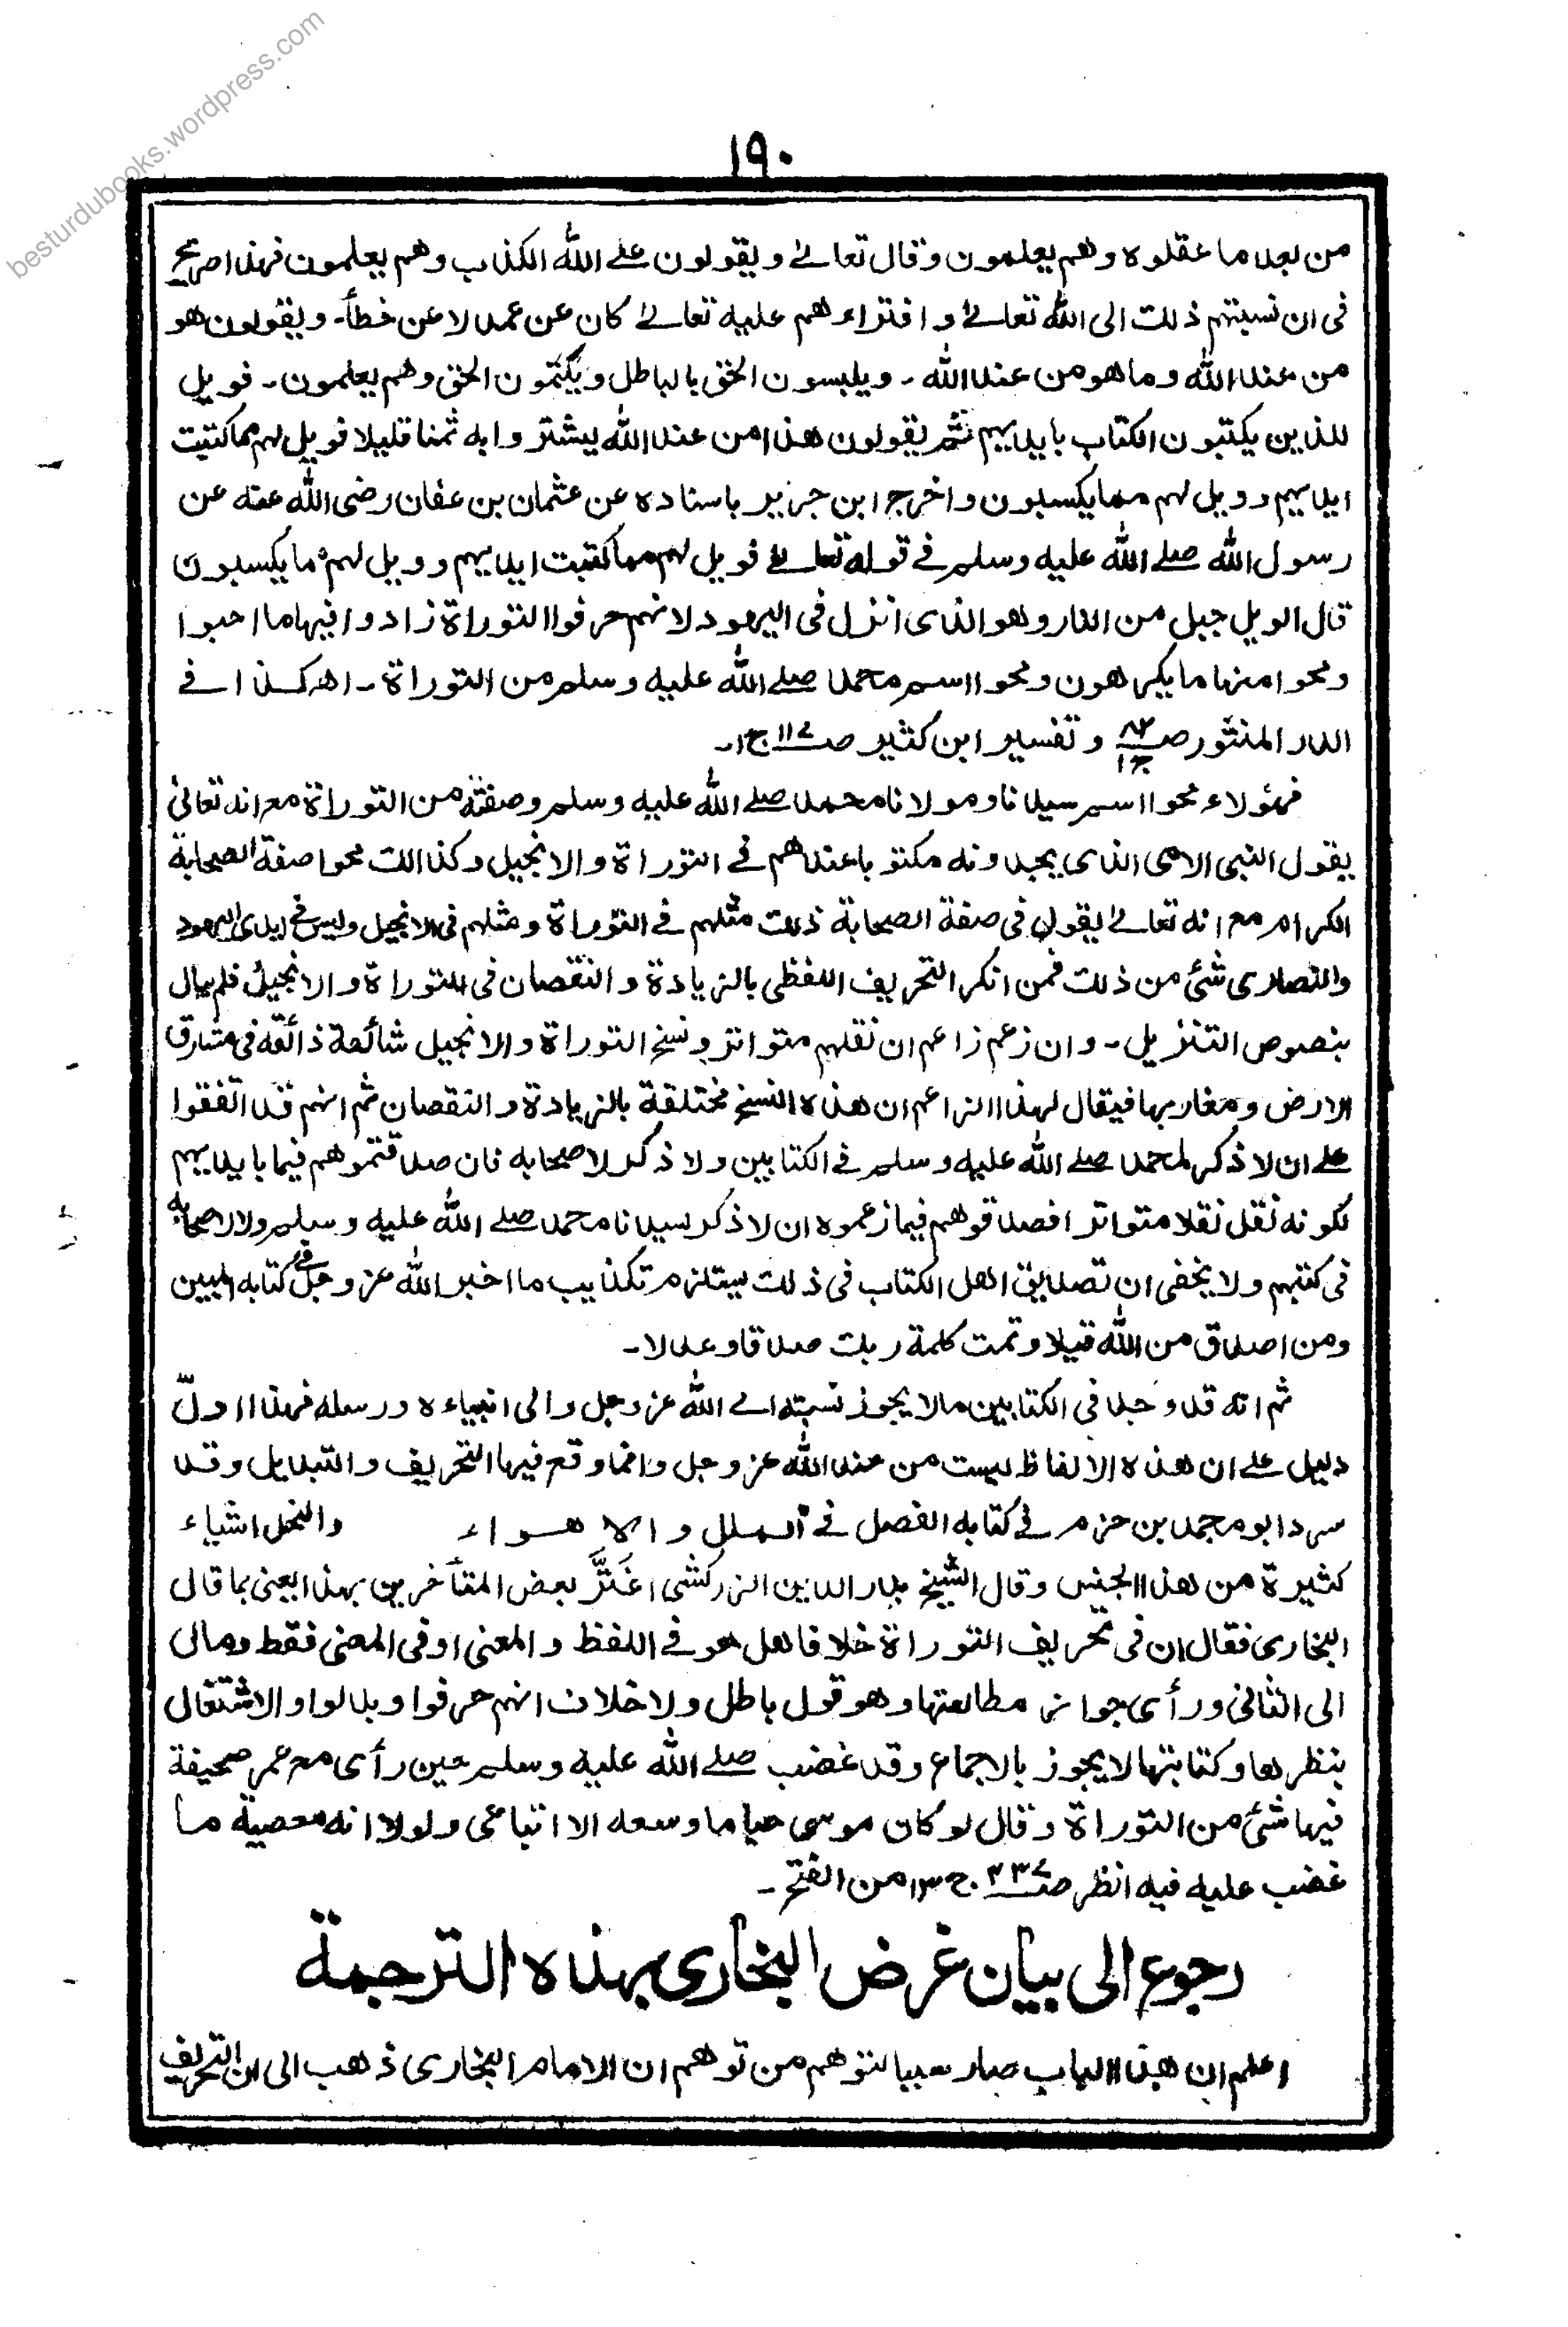 besturdubooks.wordpress.com
١٩٠
من بعد ما عقلوه وهم يعلمون وقال تعالے ويقولون علے الله الكذاب وهم يعلمون فهذا صريح
فى ان نسبتهم ذلك الى الله تعالے وافتراءهم عليه تعالے كان عن عمد لا عن خطأ۔ ويقولون هو
من عند الله وما هو من عند الله ۔ ويلبسون الحق بالباطل ويكتمون الحق وهم يعلمون۔ فويل
للذين يكتبون الكتاب بايديهم ثم يقولون هذا من عند الله ليشتروا به ثمنا قليلا فويل لهم مما كتبت
ايديهم وويل لهم مما يكسبون واخرج ابن جرير باسناده عن عثمان بن عفان رضى الله عنه عن
رسول الله صلے الله عليه وسلم فے قوله تعالے فويل لهم مما كتبت ايديهم وويل لهم مما يكسبون
قال الويل جبل من النار وهو الذى انزل فى اليهود لانهم حرفوا التوراة زادوا فيها ما احبوا
ومحوا منها ما يكرهون ومحوا اسم محمد صلے الله عليه وسلم من التوراة ۔ اهـ كذا فے
الدر المنثور صـ ٨٢ ج١ وتفسير ابن كثير صـ ١١٧ ج١۔
فهؤلاء محوا اسم سيدنا ومولانا محمد صلے الله عليه وسلم وصفته من التوراة مع انه تعالىٰ
يقول النبى الامى الذى يجدونه مكتوبا عندهم فے التوراة والانجيل وكذالك محوا صفة الصحابة
الكرام مع انه تعالے يقول فى صفة الصحابة ذلك مثلهم فے التوراة ومثلهم فى الانجيل وليس فے ايدى اليهود
والنصارى شئ من ذلك فمن انكر التحريف اللفظى بالزيادة والنقصان فى التوراة والانجيل فلم يبال
بنصوص التنزيل۔ وان زعم زاعم ان نقلهم متواتر ونسخ التوراة والانجيل شائعة ذائعة فى مشارق
الارض ومغاربها فيقال لهذا الزاعم ان هذه النسخ مختلفة بالزيادة والنقصان ثم انهم قد اتفقوا
علے ان لا ذكر لمحمد صلے الله عليه وسلم فے الكتابين ولا ذكر لاصحابه فان صدقتموهم فيما بايديهم
لكونه نقل نقلا متواترا فصدقوهم فيما زعموه ان لا ذكر سيدنا محمد صلے الله عليه وسلم ولا لاصحابه
فى كتبهم ولا يخفى ان تصديق اهل الكتاب فى ذلك يستلزم تكذيب ما اخبر الله عز وجل فے كتابه المبين
ومن اصدق من الله قيلا وتمت كلمة ربك صدقا وعدلا۔
ثم انه قد وجد فى الكتابين ما لا يجوز نسبته الے الله عز وجل والى انبياءه ورسله فهذا ادلّ
دليل علے ان هذه الالفاظ ليست من عند الله عز وجل وانما وقع فيها التحريف والتبديل وقد
سرد ابو محمد بن حزم فے كتابه الفصل فے الملل والاهواء والنحل اشياء
كثيرة من هذا الجنس وقال الشيخ بدر الدين الزركشى اغتَرَّ بعض المتأخرين بهذا يعنى بما قال
البخارى فقال ان فى تحريف التوراة خلافا هل هو فے اللفظ والمعنى او فى المعنى فقط ومال
الى الثانى ورأى جواز مطالعتها وهو قول باطل ولا خلاف انهم حرفوا وبدلوا والاشتغال
بنظرها وكتابتها لا يجوز بالاجماع وقد غضب صلے الله عليه وسلم حين رأى مع عمر صحيفة
فيها شئ من التوراة وقال لو كان موسى حيا ما وسعه الا اتباعى ولولا انه معصية ما
غضب عليه فيه انظر صـ ٤٣٣ ج ١٣ من الفتح ۔
رجوع الى بيان غرض البخارى بهذه الترجمة
اعلم ان هذا الباب صار سببا لتوهم من توهم ان الامام البخارى ذهب الى ان التحريف